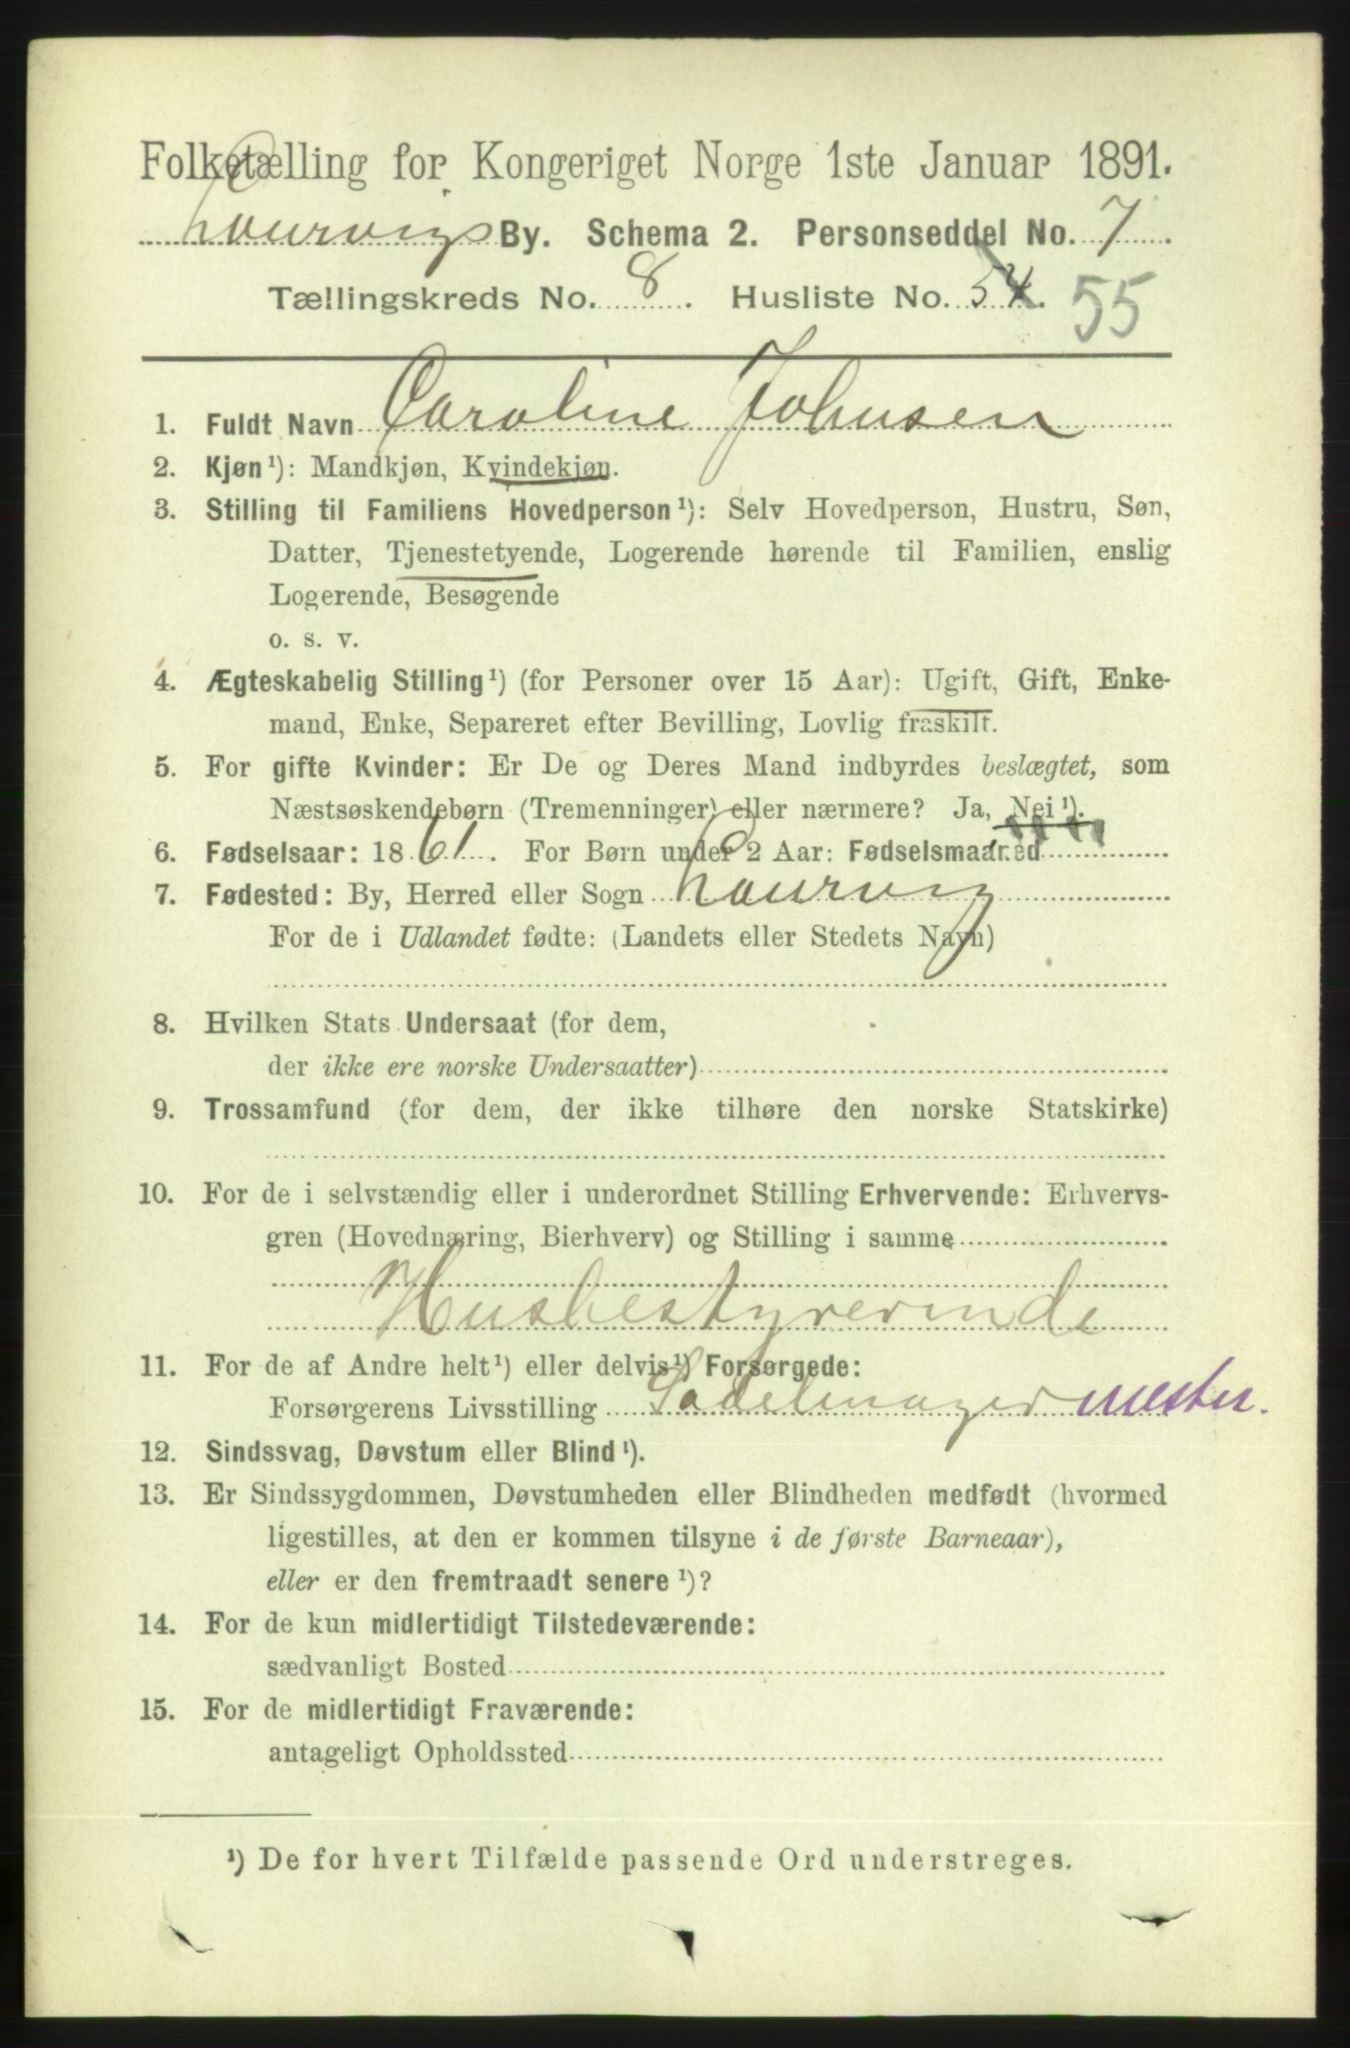 Folketælling for Kongeriget Norge 1ste Januar 1891.
Laurvigs By. Schema 2. Personseddel No. 7.
Tællingskreds No. 8. Husliste No. 54. 55
1. Fuldt Navn Caroline Johnsen
2. Kjøn¹): Mandkjøn, Kvindekjøn.
3. Stilling til Familiens Hovedperson¹): Selv Hovedperson, Hustru, Søn,
Datter, Tjenestetyende, Logerende hørende til Familien, enslig
Logerende, Besøgende
o. s. v.
4. Ægteskabelig Stilling¹) (for Personer over 15 Aar): Ugift, Gift, Enke-
mand, Enke, Separeret efter Bevilling, Lovlig fraskilt.
5. For gifte Kvinder: Er De og Deres Mand indbyrdes beslægtet, som
Næstsøskendebørn (Tremenninger) eller nærmere? Ja, Nei¹).
6. Fødselsaar: 1861. For Børn under 2 Aar: Fødselsmaaned
7. Fødested: By, Herred eller Sogn Laurvig
For de i Udlandet fødte: (Landets eller Stedets Navn)
8. Hvilken Stats Undersaat (for dem,
der ikke ere norske Undersaatter)
9. Trossamfund (for dem, der ikke tilhøre den norske Statskirke)
10. For de i selvstændig eller i underordnet Stilling Erhvervende: Erhvervs-
gren (Hovednæring, Bierhverv) og Stilling i samme
Husbestyrerinde
11. For de af Andre helt¹) eller delvis¹) Forsørgede:
Forsørgerens Livsstilling Sadelmager mester.
12. Sindssvag, Døvstum eller Blind¹).
13. Er Sindssygdommen, Døvstumheden eller Blindheden medfødt (hvormed
ligestilles, at den er kommen tilsyne i de første Barneaar),
eller er den fremtraadt senere¹)?
14. For de kun midlertidigt Tilstedeværende:
sædvanligt Bosted
15. For de midlertidigt Fraværende:
antageligt Opholdssted
¹) De for hvert Tilfælde passende Ord understreges.